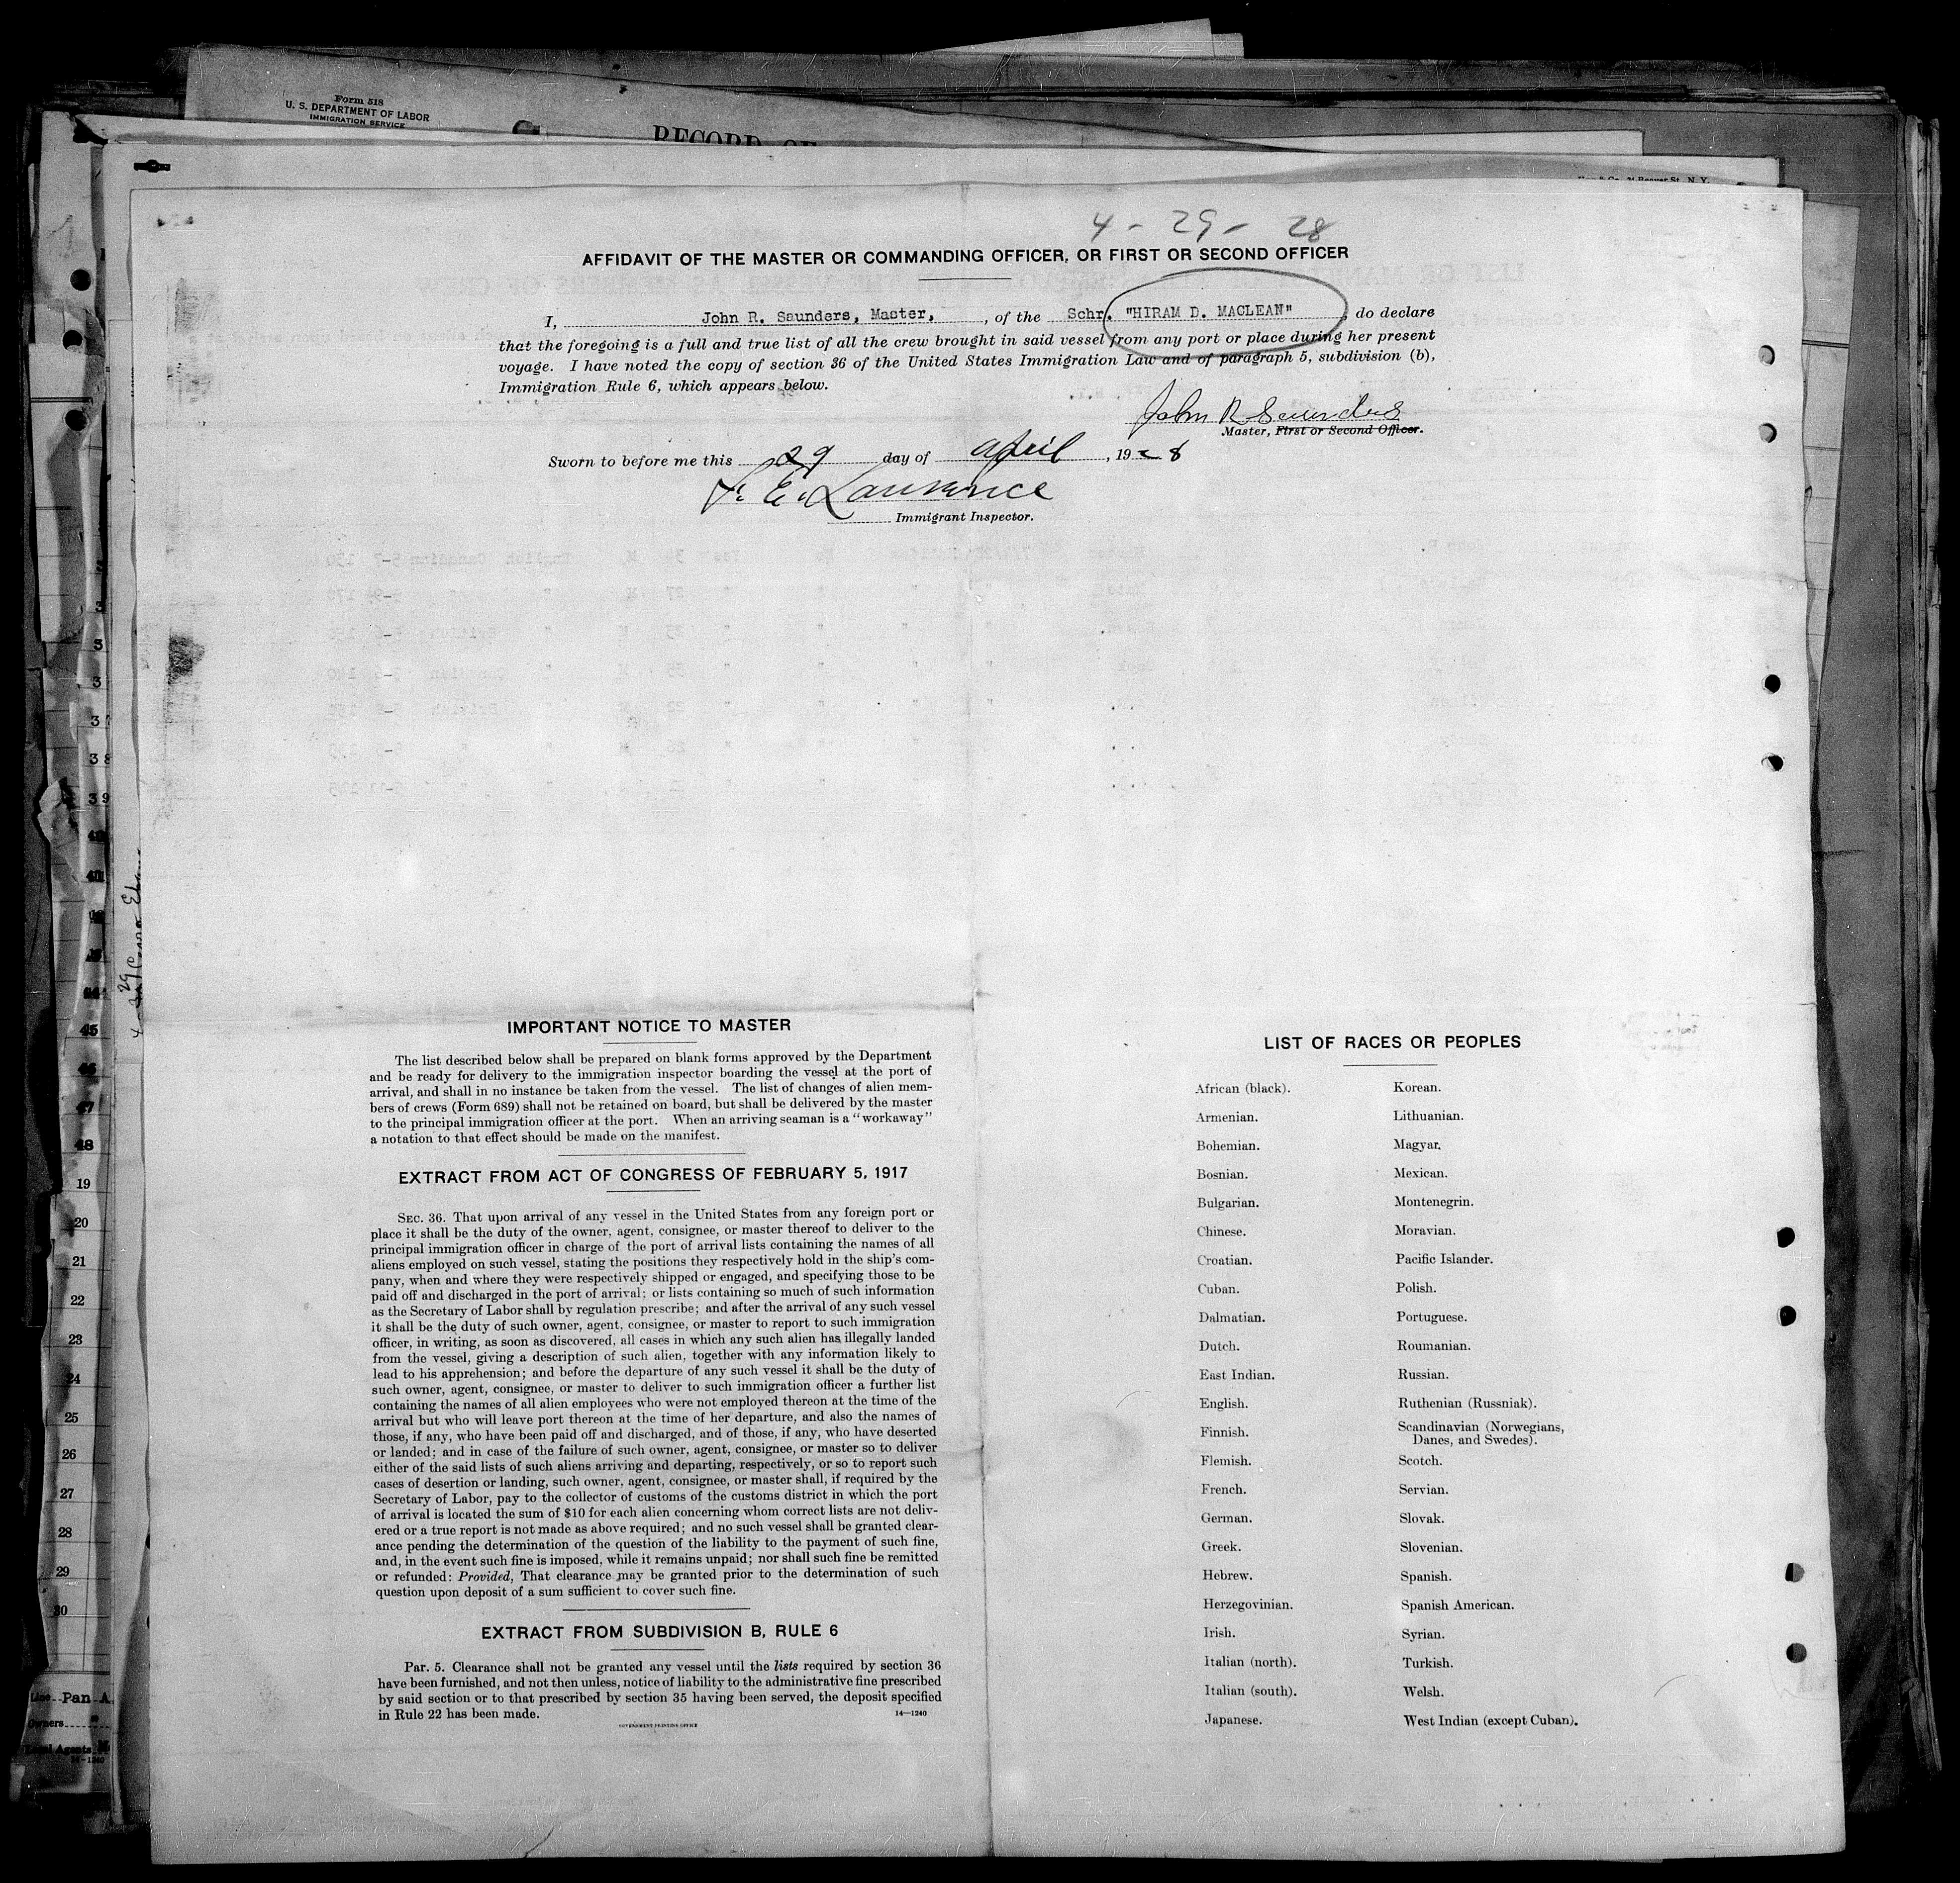 Form 518
U. S. DEPARTMENT OF LABOR
IMMIGRATION SERVICE
RECORD OF
4 - 29 - 28
AFFIDAVIT OF THE MASTER OR COMMANDING OFFICER, OR FIRST OR SECOND OFFICER
I, John R. Saunders, Master, , of the Schr. "HIRAM D. MACLEAN" , do declare
that the foregoing is a full and true list of all the crew brought in said vessel from any port or place during her present
voyage. I have noted the copy of section 36 of the United States Immigration Law and of paragraph 5, subdivision (b),
Immigration Rule 6, which appears below.
John R Saunders
Master, First or Second Officer.
Sworn to before me this 29 day of april , 1928
F. E. Lawrence
Immigrant Inspector.
IMPORTANT NOTICE TO MASTER
The list described below shall be prepared on blank forms approved by the Department
and be ready for delivery to the immigration inspector boarding the vessel at the port of
arrival, and shall in no instance be taken from the vessel. The list of changes of alien mem-
bers of crews (Form 689) shall not be retained on board, but shall be delivered by the master
to the principal immigration officer at the port. When an arriving seaman is a "workaway"
a notation to that effect should be made on the manifest.
EXTRACT FROM ACT OF CONGRESS OF FEBRUARY 5, 1917
SEC. 36. That upon arrival of any vessel in the United States from any foreign port or
place it shall be the duty of the owner, agent, consignee, or master thereof to deliver to the
principal immigration officer in charge of the port of arrival lists containing the names of all
aliens employed on such vessel, stating the positions they respectively hold in the ship's com-
pany, when and where they were respectively shipped or engaged, and specifying those to be
paid off and discharged in the port of arrival; or lists containing so much of such information
as the Secretary of Labor shall by regulation prescribe; and after the arrival of any such vessel
it shall be the duty of such owner, agent, consignee, or master to report to such immigration
officer, in writing, as soon as discovered, all cases in which any such alien has illegally landed
from the vessel, giving a description of such alien, together with any information likely to
lead to his apprehension; and before the departure of any such vessel it shall be the duty of
such owner, agent, consignee, or master to deliver to such immigration officer a further list
containing the names of all alien employees who were not employed thereon at the time of the
arrival but who will leave port thereon at the time of her departure, and also the names of
those, if any, who have been paid off and discharged, and of those, if any, who have deserted
or landed; and in case of the failure of such owner, agent, consignee, or master so to deliver
either of the said lists of such aliens arriving and departing, respectively, or so to report such
cases of desertion or landing, such owner, agent, consignee, or master shall, if required by the
Secretary of Labor, pay to the collector of customs of the customs district in which the port
of arrival is located the sum of $10 for each alien concerning whom correct lists are not deliv-
ered or a true report is not made as above required; and no such vessel shall be granted clear-
ance pending the determination of the question of the liability to the payment of such fine,
and, in the event such fine is imposed, while it remains unpaid; nor shall such fine be remitted
or refunded: Provided, That clearance may be granted prior to the determination of such
question upon deposit of a sum sufficient to cover such fine.
EXTRACT FROM SUBDIVISION B, RULE 6
Par. 5. Clearance shall not be granted any vessel until the lists required by section 36
have been furnished, and not then unless, notice of liability to the administrative fine prescribed
by said section or to that prescribed by section 35 having been served, the deposit specified
in Rule 22 has been made.
14—1240
GOVERNMENT PRINTING OFFICE
LIST OF RACES OR PEOPLES
African (black). Korean.
Armenian. Lithuanian.
Bohemian. Magyar.
Bosnian. Mexican.
Bulgarian. Montenegrin.
Chinese. Moravian.
Croatian. Pacific Islander.
Cuban. Polish.
Dalmatian. Portuguese.
Dutch. Roumanian.
East Indian. Russian.
English. Ruthenian (Russniak).
Finnish. Scandinavian (Norwegians,
Danes, and Swedes).
Flemish. Scotch.
French. Servian.
German. Slovak.
Greek. Slovenian.
Hebrew. Spanish.
Herzegovinian. Spanish American.
Irish. Syrian.
Italian (north). Turkish.
Italian (south). Welsh.
Japanese. West Indian (except Cuban).
45
46
47
48
19
20
21
22
23
24
25
26
27
28
29
30
Line Pan A
Owners
Local Agents
14-1240